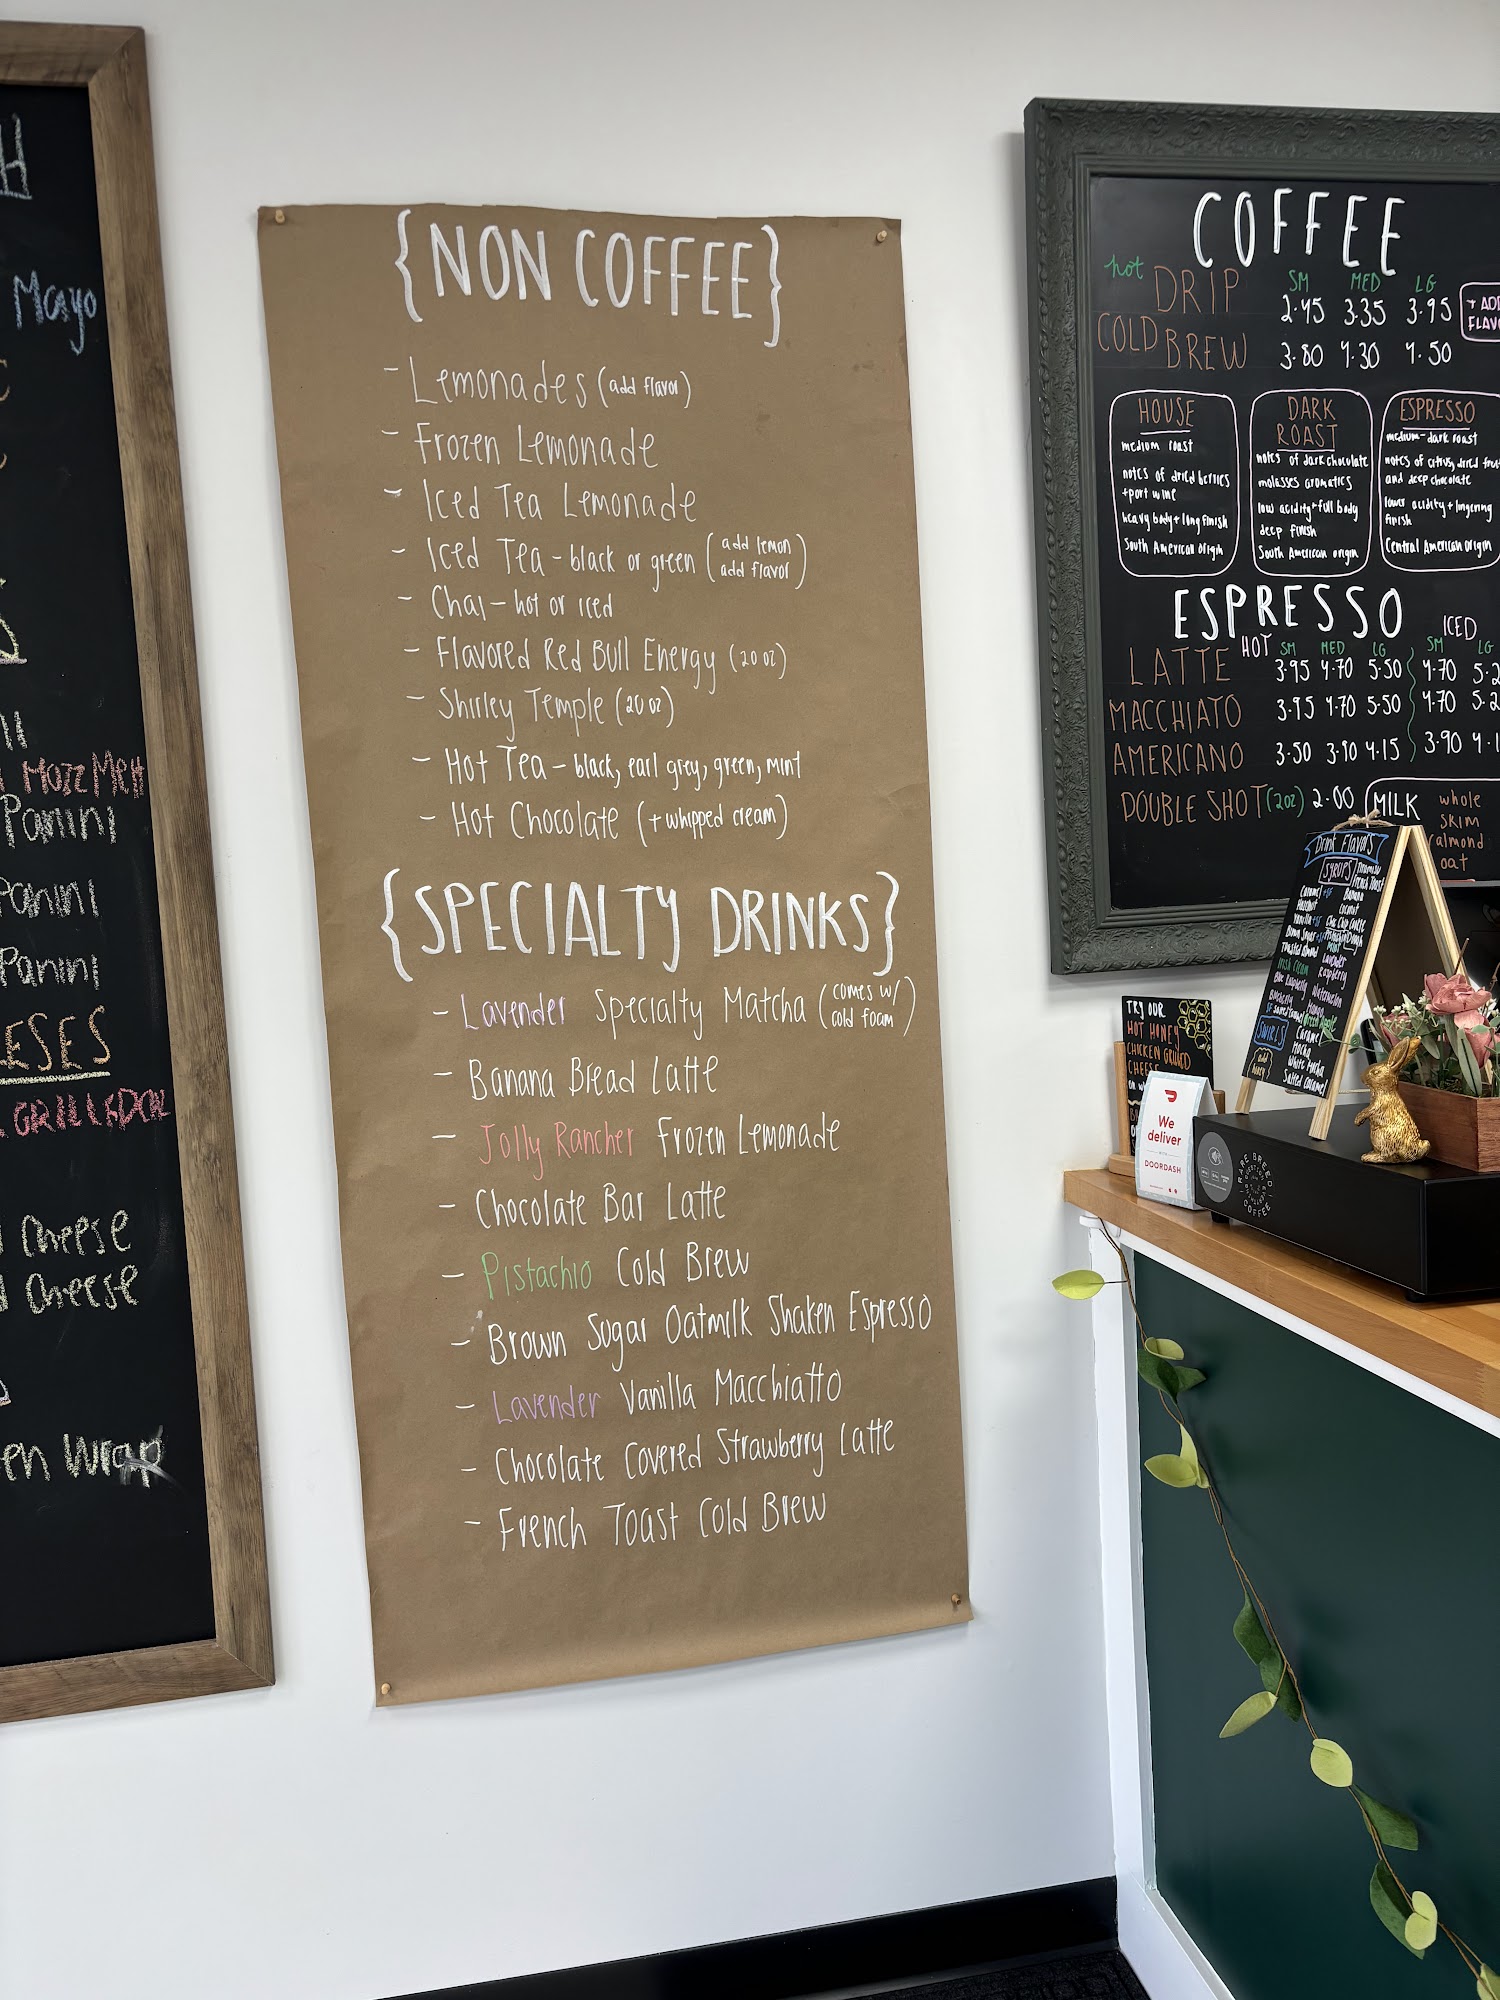 H
Mayo
Panini
Panini
Panini
ESES
Cheese
Cheese
en Wrap
{NON COFFEE}
- Lemonades (add flavor)
- Frozen Lemonade
- Iced Tea Lemonade
- Iced Tea - black or green (add lemon
add flavor)
- Chai - hot or iced
- Flavored Red Bull Energy (20 oz)
- Shirley Temple (20 oz)
- Hot Tea - black, earl grey, green, mint
- Hot Chocolate (+ whipped cream)
{SPECIALTY DRINKS}
- Lavender Specialty Matcha (comes w/
cold foam)
- Banana Bread Latte
- Jolly Rancher Frozen Lemonade
- Chocolate Bar Latte
- Pistachio Cold Brew
- Brown Sugar Oatmilk Shaken Espresso
- Lavender Vanilla Macchiatto
- Chocolate Covered Strawberry Latte
- French Toast Cold Brew
COFFEE
SM MED LG
hot DRIP 2.45 3.35 3.95
COLD BREW 3.80 4.30 4.50
+ ADD
FLAV
HOUSE
medium roast
notes of dried berries
+ port wine
heavy body + long finish
South American Origin
DARK
ROAST
notes of dark chocolate
molasses aromatics
low acidity + full body
deep finish
South American origin
ESPRESSO
medium-dark roast
notes of citrus, dried fruit
and deep chocolate
lower acidity + lingering
finish
Central American origin
ESPRESSO
HOT SM MED LG
ICED
SM LG
LATTE 3.95 4.70 5.50 4.70 5.2
MACCHIATO 3.95 4.70 5.50 4.70 5.2
AMERICANO 3.50 3.90 4.15 3.90 4.1
DOUBLE SHOT (2oz) 2.00
MILK
whole
skim
almond
oat
Drink Flavors
SYRUPS
Caramel
Hazelnut
Vanilla
Brown Sugar
Irish Cream
Blue Raspberry
French Toast
Banana
Coconut
Lavender
Raspberry
Watermelon
Mango
SWIRLS
Caramel
Mocha
White Mocha
Salted Caramel
add
honey
TRY OUR
HOT HONEY
CHICKEN GRILLED
CHEESE
We
deliver
WITH
DOORDASH
RARE BREED
COFFEE